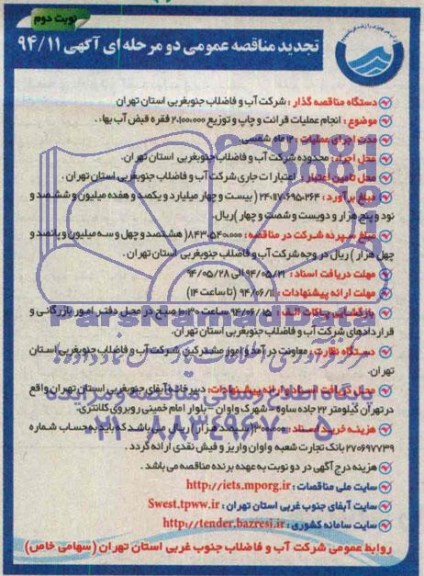 نوبت دوم
تجدید مناقصه عمومی دو مرحله ای آگهی ۹۴/۱۱
دستگاه مناقصه گذار : شرکت آب و فاضلاب جنوبغربی استان تهران
موضوع : انجام عملیات قرائت و چاپ و توزیع ۲،۱۰۰،۰۰۰ فقره قبض آب بهاء .
مدت اجرای عملیات : ۱۲ ماه شمسی
محل اجراء : محدوده شرکت آب و فاضلاب جنوبغربی استان تهران.
محل تأمین اعتبار : اعتبارات جاری شرکت آب و فاضلاب جنوبغربی استان تهران .
مبلغ برآورد : ۲۴،۱۱۷،۶۹۵،۲۶۴ ( بیست و چهار میلیارد و یکصد و هفده میلیون و ششصد و
نود و پنج هزار و دویست و شصت و چهار )ریال.
مبلغ سپرده شرکت در مناقصه : ۸۴۳،۵۴۰،۰۰۰( هشتصد و چهل و سه میلیون و پانصد و
چهل هزار ) ریال در وجه شرکت آب و فاضلاب جنوبغربی استان تهران .
مهلت دریافت اسناد : ۹۴/۰۵/۲۱ الی ۹۴/۰۵/۲۸
مهلت ارائه پیشنهادات : ۹۴/۰۶/۱۱ (تا ساعت ۱۴)
بازگشایی پاکات الف : ۹۴/۰۶/۱۵ ساعت ۱۰:۳۰ صبح در محل دفتر امور بازرگانی و
قراردادهای شرکت آب و فاضلاب جنوبغربی استان تهران.
دستگاه نظارت : معاونت درآمد و امور مشترکین شرکت آب و فاضلاب جنوبغربی استان
تهران.
محل دریافت اسناد و ارائه پیشنهادات : دبیرخانه آبفای جنوبغربی استان تهران واقع
در تهران کیلومتر ۲۲ جاده ساوه - شهرک واوان - بلوار امام خمینی روبروی کلانتری.
هزینه خرید اسناد : ۳۰۰،۰۰۰( سیصد هزار ) ریال می باشد که باید به حساب شماره
۲۷۰۶۹۷۷۳۹ بانک تجارت شعبه واوان واریز و فیش نقدی ارائه گردد .
هزینه درج آگهی در دو نوبت به عهده برنده مناقصه می باشد .
سایت ملی مناقصات : http://iets.mporg.ir
سایت آبفای جنوب غربی استان تهران : Swest.tpww.ir
سایت سامانه کشوری : http://tender.bazresi.ir
روابط عمومی شرکت آب و فاضلاب جنوب غربی استان تهران (سهامی خاص)
پایگاه اطلاع رسانی مناقصه و مزایده
۰۲۱-۸۸۳۴۹۶۷۰-۵